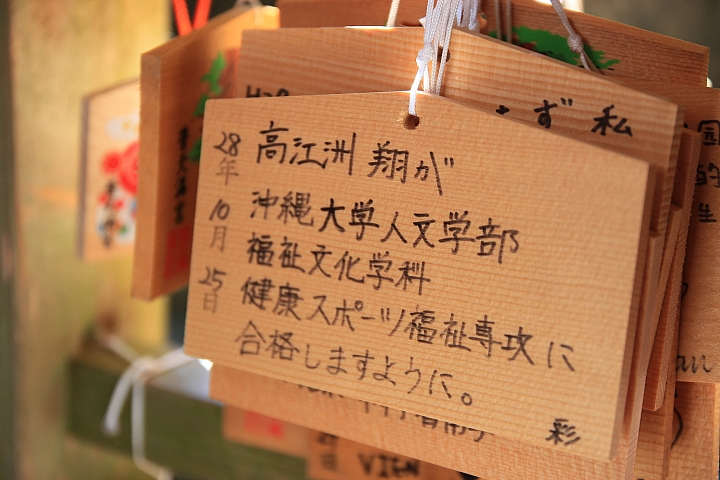 28年
10月
25日
高江洲 翔が
沖縄大学人文学部
福祉文化学科
健康スポーツ福祉専攻に
合格しますように。
彩
ず 私
VIEN